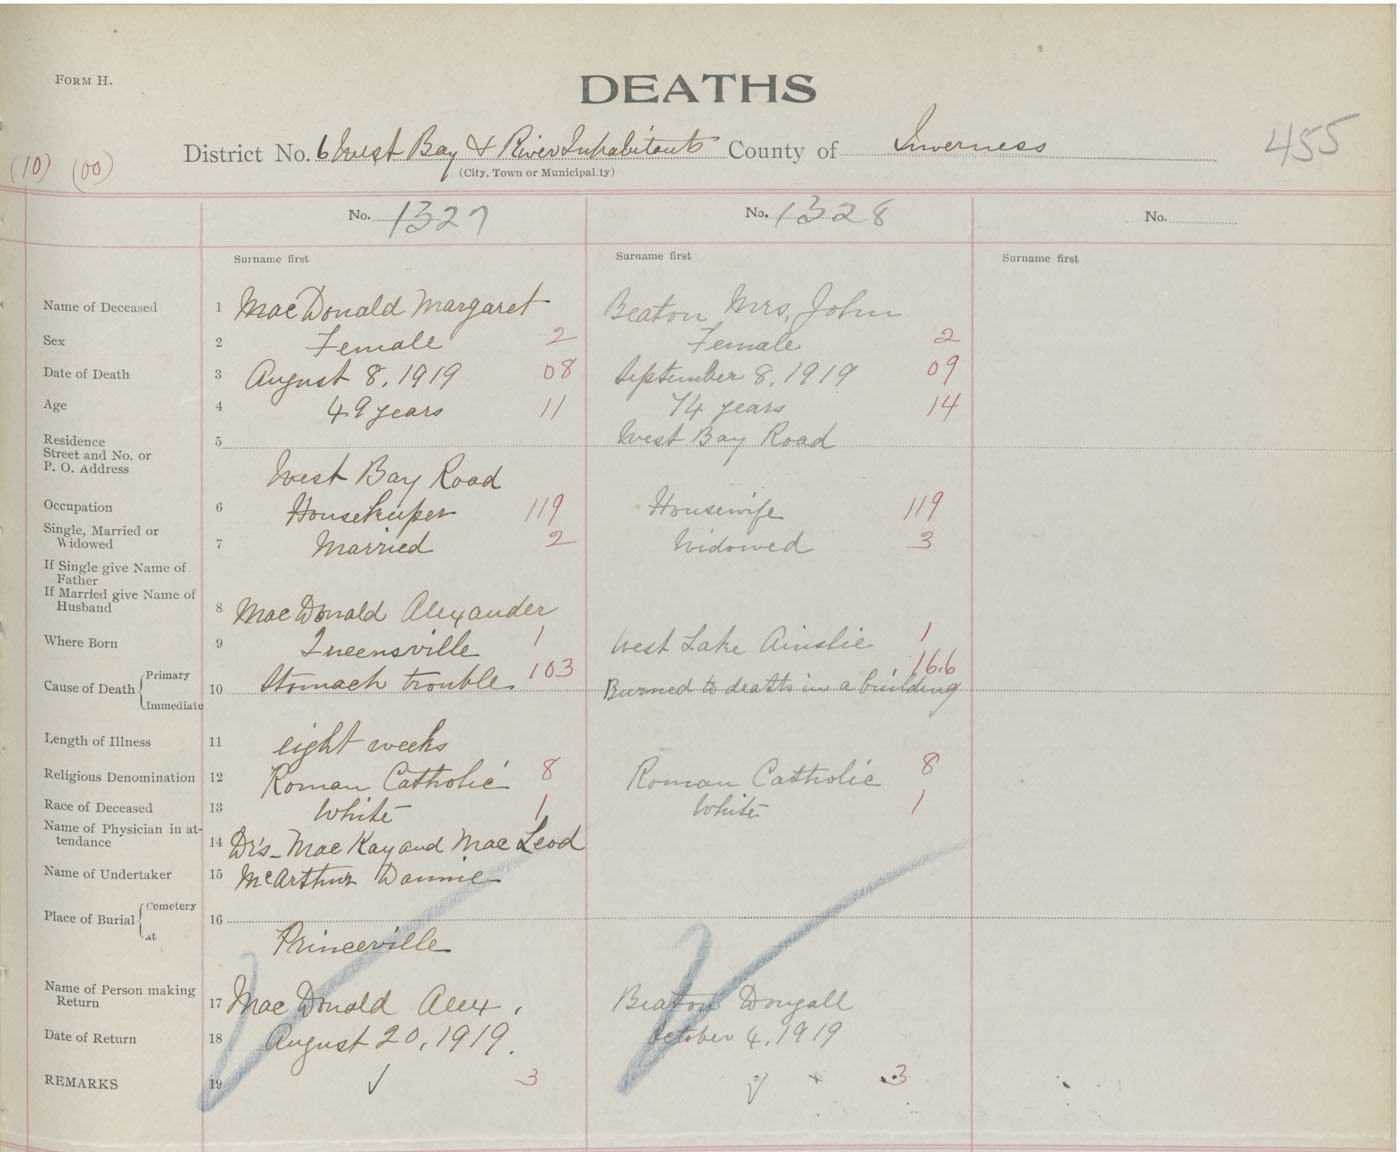 FORM H.
DEATHS
455
District No. 6 West Bay & River Inhabitants County of Inverness
(City, Town or Municipality)
(10) (00)
No. 1327 No. 1328 No.
Surname first Surname first Surname first
Name of Deceased 1 MacDonald Margaret Beaton Mrs, John
Sex 2 Female 2 Female 2
Date of Death 3 August 8, 1919 08 September 8, 1919 09
Age 4 49 years 11 74 years 14
Residence 5 West Bay Road
Street and No. or
P. O. Address West Bay Road
Occupation 6 Housekeeper 119 Housewife 119
Single, Married or
Widowed 7 Married 2 Widowed 3
If Single give Name of
Father
If Married give Name of
Husband 8 MacDonald Alexander
Where Born 9 Queensville 1 West Lake Ainslie 1
Cause of Death Primary 103 166
10 Stomach trouble. Burned to death in a building
Immediate
Length of Illness 11 eight weeks
Religious Denomination 12 Roman Catholic 8 Roman Catholic 8
Race of Deceased 13 White 1 White 1
Name of Physician in at-
tendance 14 Dr's_ MacKay and MacLeod
Name of Undertaker 15 McArthur Dannie
Place of Burial Cemetery 16
at Princeville
Name of Person making
Return 17 MacDonald Alex, Beaton Dougall
Date of Return 18 August 20, 1919. October 4, 1919
REMARKS 19 √ 3 √ 3